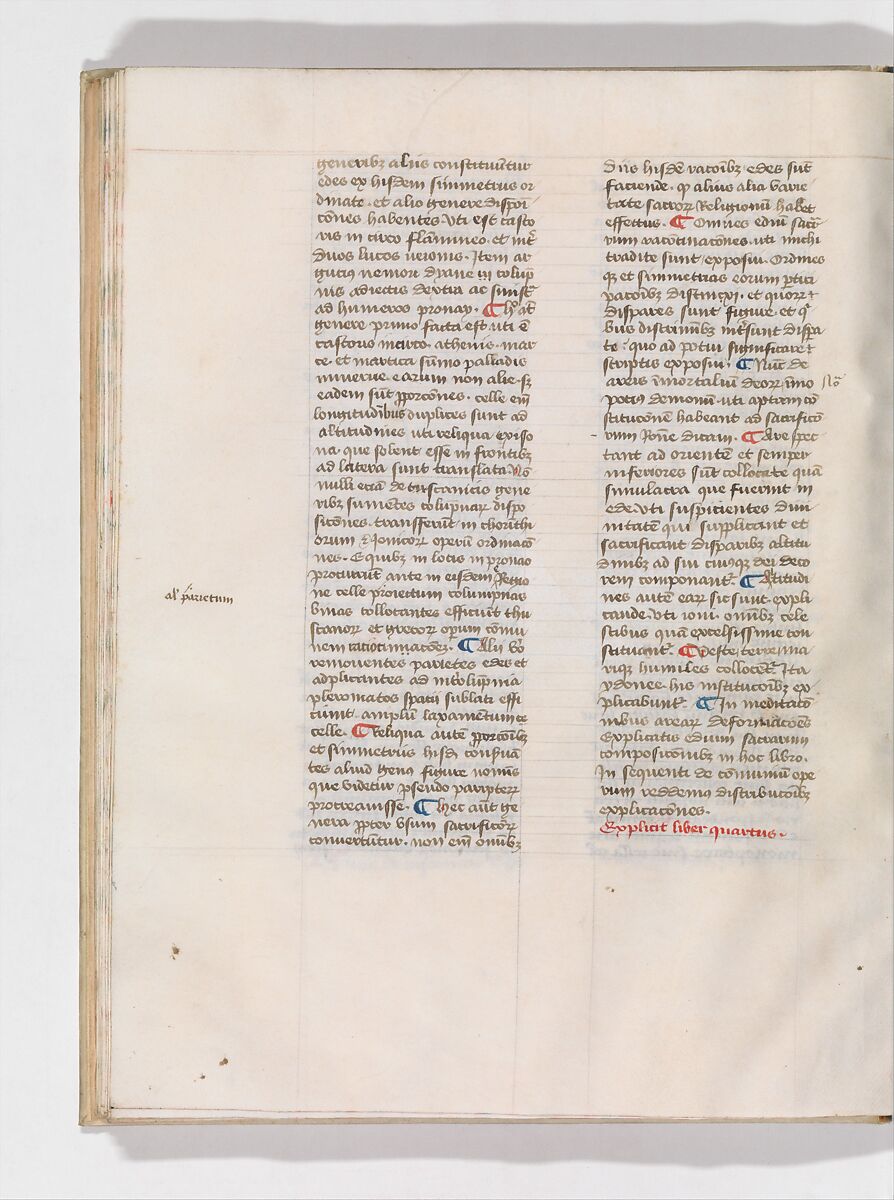 generibz aliis constituūtur
edes ex hisdem simmetriis or
dinate. et alio genere dispoi
cōnes habentes vti est casto
ris in circo flāmineo. et int̄
duos lucos veiouis. Item ar
gucig nemori dyane in colūp
nis adiectis dextra ac sinist̄
ad humeros pronay. ¶ h͛ at̄
genere primo facta est uti ē
castoris in circo. athenis. mar
ce. et in artica sūmo palladis
minerue. earum non alie. sȝ
eadem sūt ꝓporcōnes. celle em̄
longitudībus duplices sunt ad
altitudines uti reliqua exiso
na. que solent esse in frontibȝ
ad latera sunt translata. Nō
nulli eciā de tuscanicis gene
ribȝ sumētes colūpnarꝝ disꝑo
sicōnes. transferūt in chorithi
orum & Jonicorꝝ operū ordinacō
nes. E quibȝ in locis in pronao
procurrūt ante in eisdem regio
ne celle proiectum columpnas
binas collocantes efficiūt thu
scanorꝝ et grecorꝝ opum cōmu
nem ratiocinacōnē. ¶ Alii v͛o
remouentes parietes edes et
adplicantes ad intcolūpnia
pleromatos spacii sublati effi
ciunt. amplū laxamentum ce
celle. ¶ Reliqua autē ꝓporcōibȝ
et simmetriis hisdē conseruā
tes aliud genꝰ figure nomīs
que videtur pseudo paripterꝝ
procreauisse. ¶ hec aūt ge
nera ꝓpter vsum sacrificiorꝝ
conuertūtur. non em̄ omībȝ
al' parietum
Diis hisdē racoībȝ edes sūt
faciende. qꝫ alius alia varie
tate sacrorꝝ Religionū habet
effectus. ¶ Omnes ediū sacra
rum racocinacōnes. uti michi
tradite sunt. exposui. Ordines
qꝫ et simmetrias eorum ꝑtici
pacoībȝ distinxi. et quorꝝ
dispares sunt figure. et q̄
bus discrimībȝ int̄ sunt dispa
te. quo ad potui significare
scriptis exposui. ¶ Nūc de
areis īmortaliū deorꝝ īmo
potiꝰ demonū. uti aptam cō
stitucōnē habeant ad sacrificō
rum Rōne dicam. ¶ Are spec
tant ad orientē et semper
inferiores sūt collocate quā
simulacra que fuerint in
ede. vti suspicientes diui
nitatē qui supplicant et
sacrificant disparibȝ altitu
dinibȝ ad sui cuiusqꝫ dei deco
rem componant̄. ¶ Altitudi
nes autē earꝝ sic sunt. expli
cande. vti ioui. omībȝ cele
stibus quā excelsissime con
stituant̄. ¶ veste. terre. ma
riqꝫ humiles collocent̄. Ita
ydonee. his institucoībȝ ex
plicabunt̄. ¶ In meditacō
nibus arearꝝ deformacōes
Explicatis edium sacrarum
composiconibȝ in hoc libro.
In sequenti de cōmuniū ope
rum reddemꝰ distribucoībȝ
explicacōnes.
Explicit liber quartus.
Nō